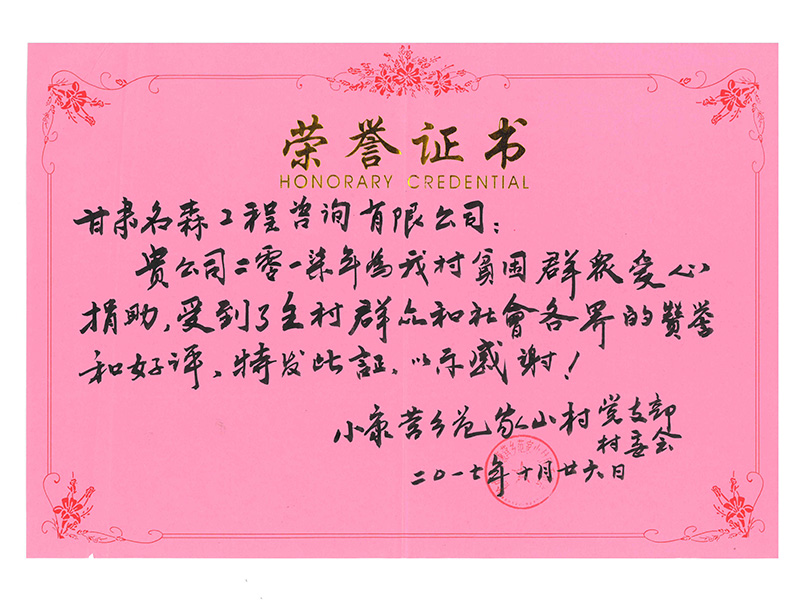 荣誉证书
HONORARY CREDENTIAL
甘肃名森工程咨询有限公司：
贵公司二零一柒年為我村貧困群衆爱心
捐助，受到了全村群众和社會各界的赞誉
和好评、特发此証、以示感谢！
小康营乡范家山村党支部
村委会
二〇一七年十月廿六日